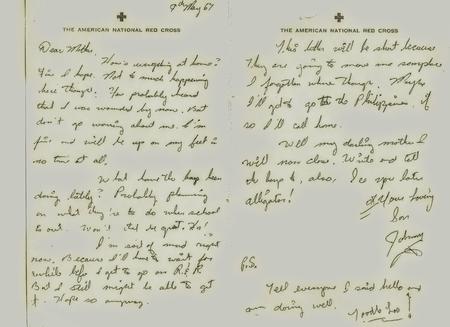 9th May 67
THE AMERICAN NATIONAL RED CROSS
Dear Mother,
How's everything at home?
Fine I hope. Not to much happening
here though. You probably heard
that I was wounded by now. But
don't go worring about me. I'm
fine and will be up on my feet in
no time at all.
What have the boys been
doing lately? Probably planning
on what they're to do when school
is out. Won't that be great. Ha!
I'm sort of mad right
now. Because I'll have to wait for
while before I get to go on R & R.
But I still might be able to get
it. Hope so anyway.
THE AMERICAN NATIONAL RED CROSS
This letter will be short because
they are going to move me someplace
I forgotten where though. Maybe
I'll get to go to the Philippines, if
so I'll call home.
Well my darling mother I
will now close. Write and tell
the boys to, also, I see you later
alligator!
Your loving
Son
Johnny
P.S.
Tell everyone I said hello and
am doing well.